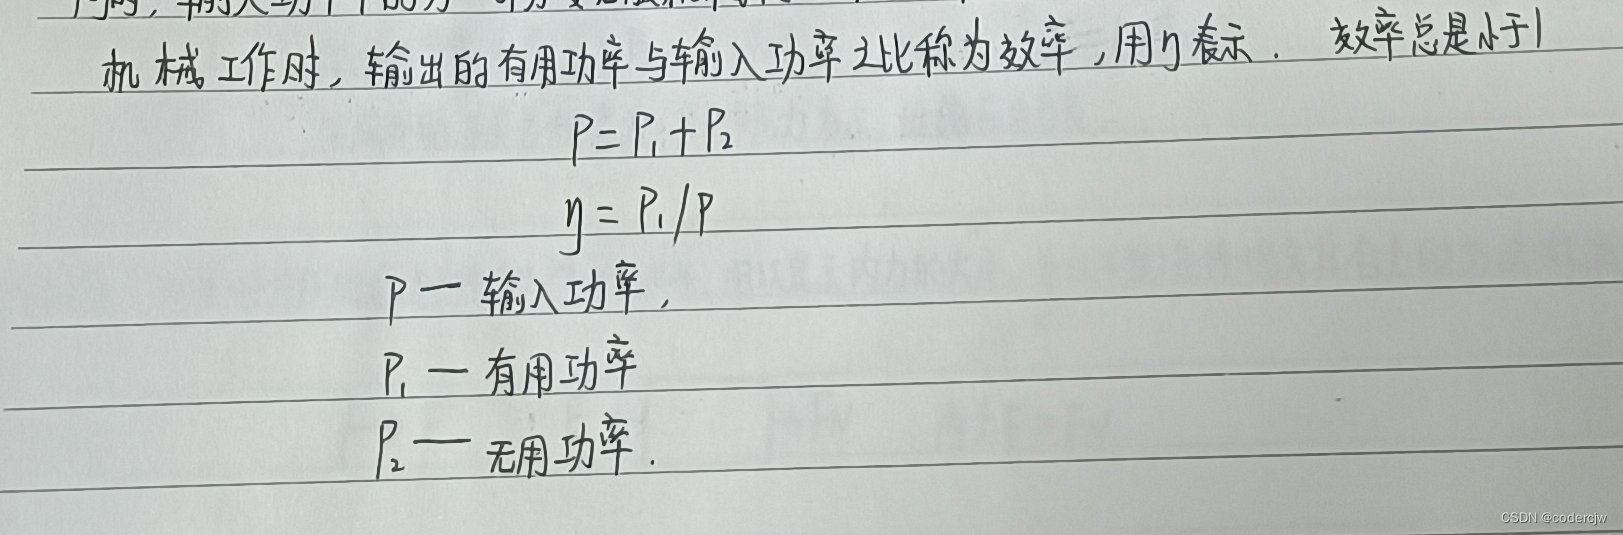 机械工作时，输出的有用功率与输入功率之比称为效率，用η表示． 效率总是小于1
P=P₁+P₂
η=P₁/P
P — 输入功率，
P₁ — 有用功率
P₂ — 无用功率．
CSDN @codercjw